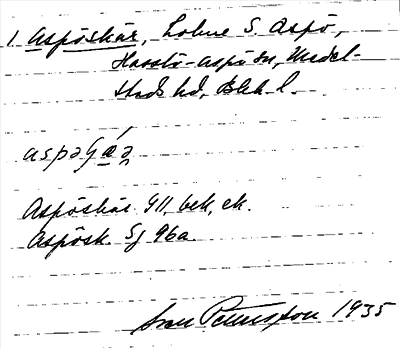 1. Aspöskär, Lolme S. Aspö,
Hasslö-Aspö sn, Medel-
stads hd, Blek. l.
aspəʃǽə̯
Aspöskär G11, bek, ek.
Aspösk. Sj 96a
Svan Petersson 1935